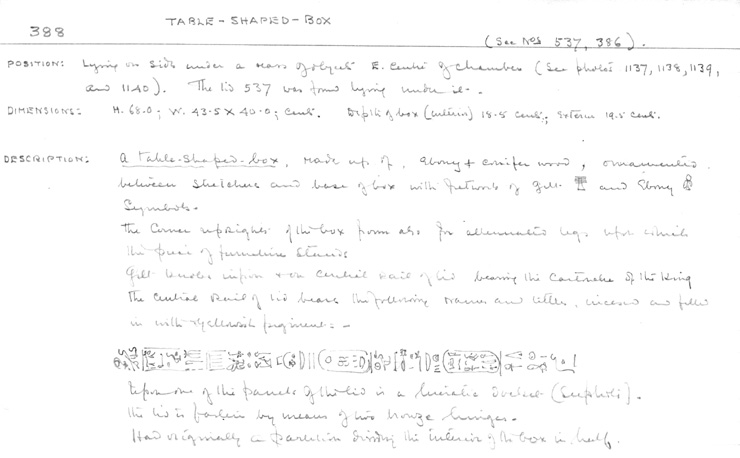 388
TABLE-SHAPED-BOX
(See Nos 537, 386).
POSITION: Lying on side under a mass of objects E. centre of chamber (See photos 1137, 1138, 1139,
and 1140). The lid 537 was found lying under it.
DIMENSIONS: H. 68.0; W. 43.5 X 40.0; cent. Depth of box (interior) 18.5 cent.; exterior 19.5 cent.
DESCRIPTION: A table-shaped-box, made up of, ebony + conifer wood, ornamented
between stretchers and base of box with fretwork of gilt and ebony
symbols.
The corner uprights of the box form also for attenuated legs upon which
the piece of furniture stands
Gilt knobs upon + on central rail of lid bearing the cartouche of the King
The central rail of lid bears the following names and titles, incised and filled
in with yellowish pigment: -
Upon one of the panels of the lid is a hieratic docket (see photo).
The lid is fastened by means of two bronze hinges.
Had originally a partition dividing the interior of the box in half.